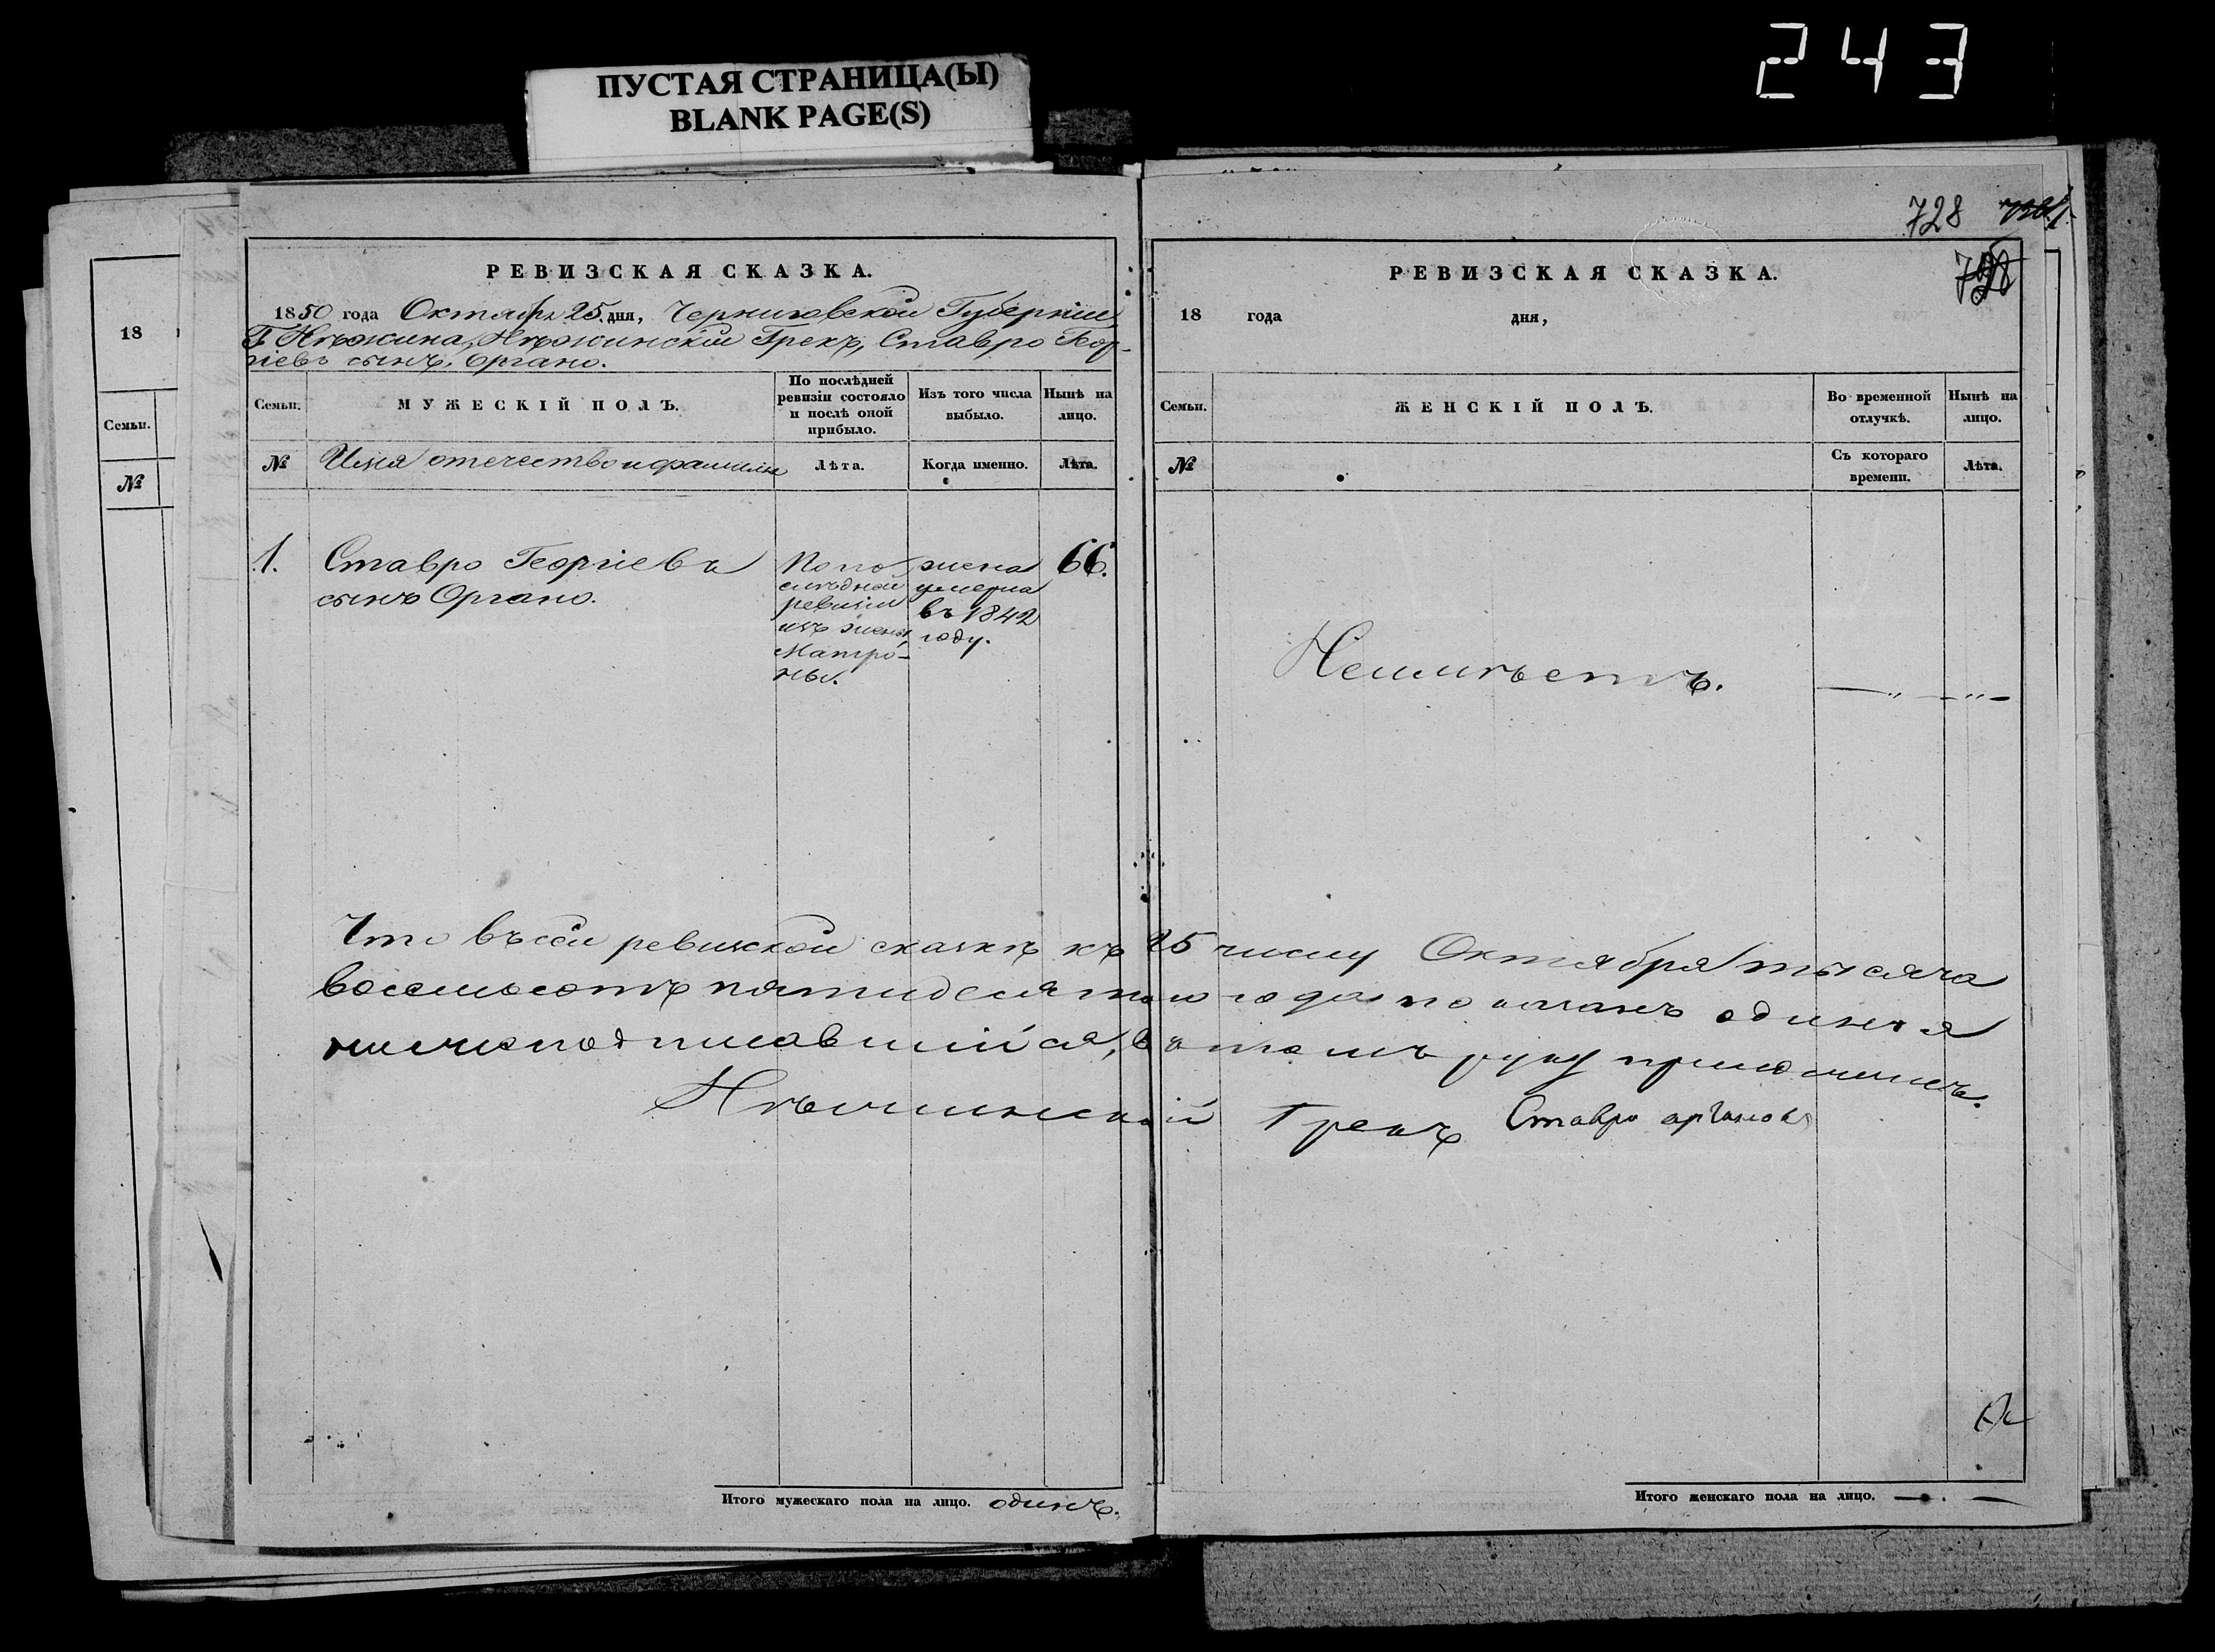 243
ПУСТАЯ СТРАНИЦА(Ы)
BLANK PAGE(S)
18
Семьи.
№
РЕВИЗСКАЯ СКАЗКА.
1850 года Октября 25 дня, Черниговской Губернии
Г. Нѣжина, Нѣжинскій Грекъ, Ставро Геор-
гіевъ сынъ, Органо.
Семьи.
МУЖЕСКІЙ ПОЛЪ.
По послѣдней
ревизіи состояло
и послѣ оной
прибыло.
Изъ того числа
выбыло.
Нынѣ на
лицо.
№
Имя отечество и фамилия
Лѣта.
Когда именно.
Лѣта.
1.
Ставро Георгіевъ
сынъ Органо.
По по
слѣдней
ревизіи
изъ жены
Матро-
ны.
жена
умерла
въ 1842
году.
66.
728
РЕВИЗСКАЯ СКАЗКА.
18 года дня,
Семьи.
ЖЕНСКІЙ ПОЛЪ.
Во временной
отлучкѣ.
Нынѣ на
лицо.
№
Съ котораго
времени.
Лѣта.
Неимѣетъ.
Что въ сей ревизской сказкѣ къ 25 числу Октября тысяча
восемьсотъ пятидесятого года показанъ одинъ я
нижеподписавшійся, въ томъ руку приложилъ.
Нѣжинскій Грекъ Ставро органовъ
Итого мужескаго пола на лицо. одинъ.
Итого женскаго пола на лицо. —